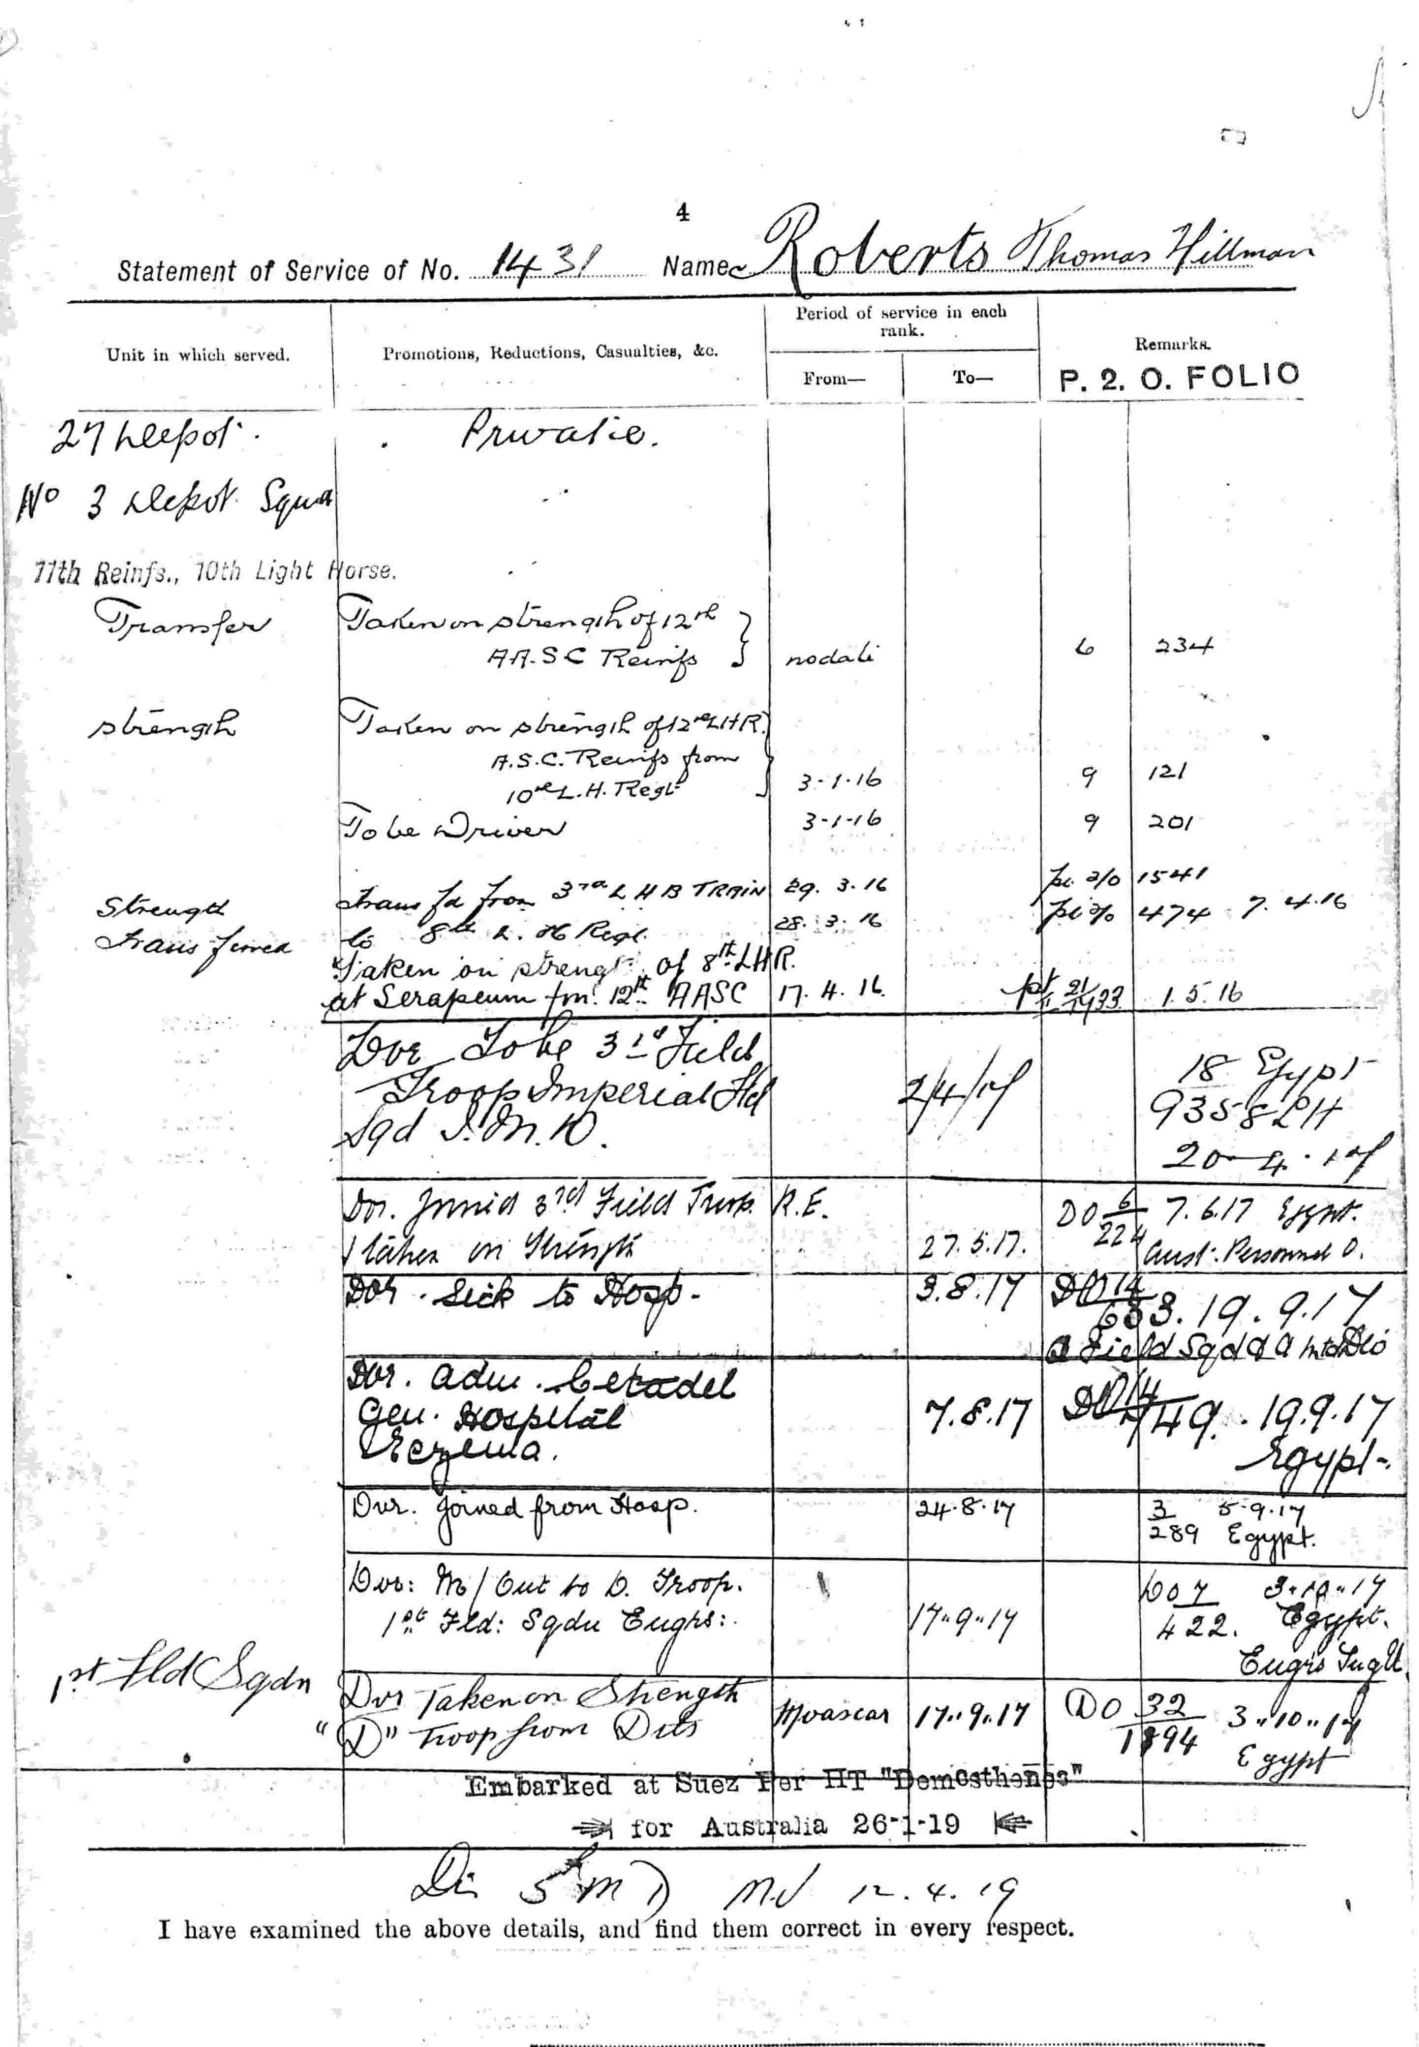 4
Statement of Service of No. 1431 Name Roberts Thomas Hillman
Unit in which served. Promotions, Reductions, Casualties, &c. Period of service in each rank. Remarks.
From— To— P. 2. O. FOLIO
27 Depot. Private.
No 3 Depot Squa
11th Reinfs., 10th Light Horse.
Transfer Taken on strength of 12th
A.A.S.C Reinfs nodate 6 234
strength Taken on strength of 12th LHR.
A.S.C. Reinfs from
10th L.H. Regt 3-1-16 9 121
To be Driver 3-1-16 9 201
Strength transfd from 3rd L H B TRAIN 29. 3. 16 1541
transferred to 8th L. H Regt. 28. 3. 16 474 7. 4. 16
Taken on strength of 8th LHR.
at Serapeum fm. 12th AASC 17. 4. 16. 1. 5. 16
Dvr To be 3rd Field
Troop Imperial Fld 2/4/17 18 Egypt
Sqd 9358 LH
20-4-17
Dvr. Joined 3rd Field Troop R.E. DO 6/224 7.6.17 Egypt.
taken on Strength 27.5.17. Aust: Personnel O.
Dvr. Sick to Hosp. 3.8.17 DO 14/683. 19. 9. 17
Field Sqd
Dvr. Adm. Citadel
Gen. Hospital 7.8.17 DO 14/749. 19.9.17
Eczema. Egypt.
Dvr. Joined from Hosp. 24.8.17 3/289 5.9.17 Egypt.
Dvr: M/Out to D. Troop. DO 7/422. 3"10"17
1st Fld: Sqdn Engrs: 17"9"17 Egypt.
Engrs
1st Fld Sqdn Dvr Taken on Strength
"D" Troop from Dets Moascar 17"9"17 DO 32/1894 3"10"17
Egypt
Embarked at Suez Per HT "Demosthenes"
for Australia 26-1-19
Dis 5 M D 12. 4. 19
I have examined the above details, and find them correct in every respect.